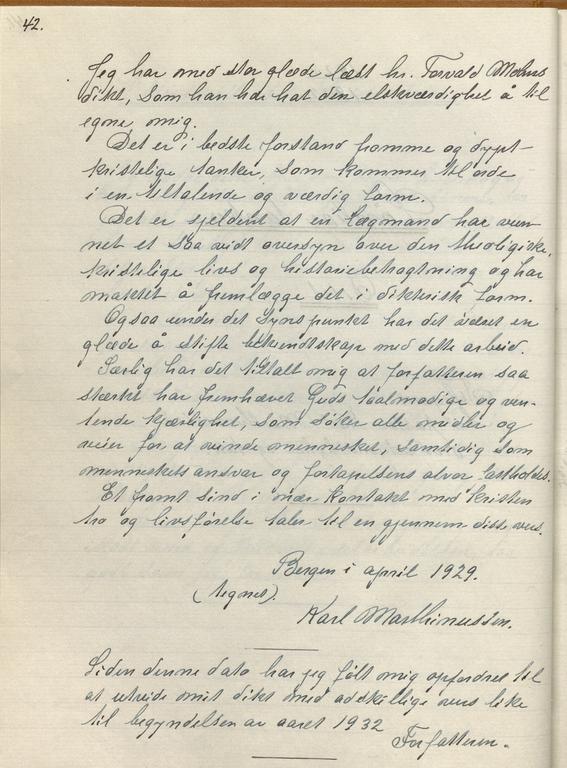 42.
Jeg har med stor glæde læst hr. Torvald Mohns
dikt, som han har hat den elskværdighet å til
egne mig.
Det er i bedste forstand fromme og dypt-
kristelige tanker, som kommer til orde
i en tiltalende og værdig form.
Det er sjeldent at en lægmand har vun-
net et saa vidt oversyn over den theologiske,
kristelige livs og historiebetragtning og har
maktet å fremlægge det i dikterisk form.
Ogsaa under det synspunkt har det været en
glæde å stifte bekjendtskap med dette arbeid.
Særlig har det tiltalt mig at forfatteren saa
stærkt har fremhævet Guds taalmodige og ven-
tende kjærlighet, som søker alle midler og
veier for at vinde mennesket, samtidig som
menneskets ansvar og fortapelsens alvor fastholdes.
Et fromt sind i nær kontakt med kristen
tro og livsførelse taler til en gjennem disse vers.
Bergen i april 1929.
(tegnet).
Karl Marthinussen.
Siden denne dato har jeg følt mig opfordret til
at utvide mit dikt med adskillige vers like
til begyndelsen av aaret 1932
Forfatteren.